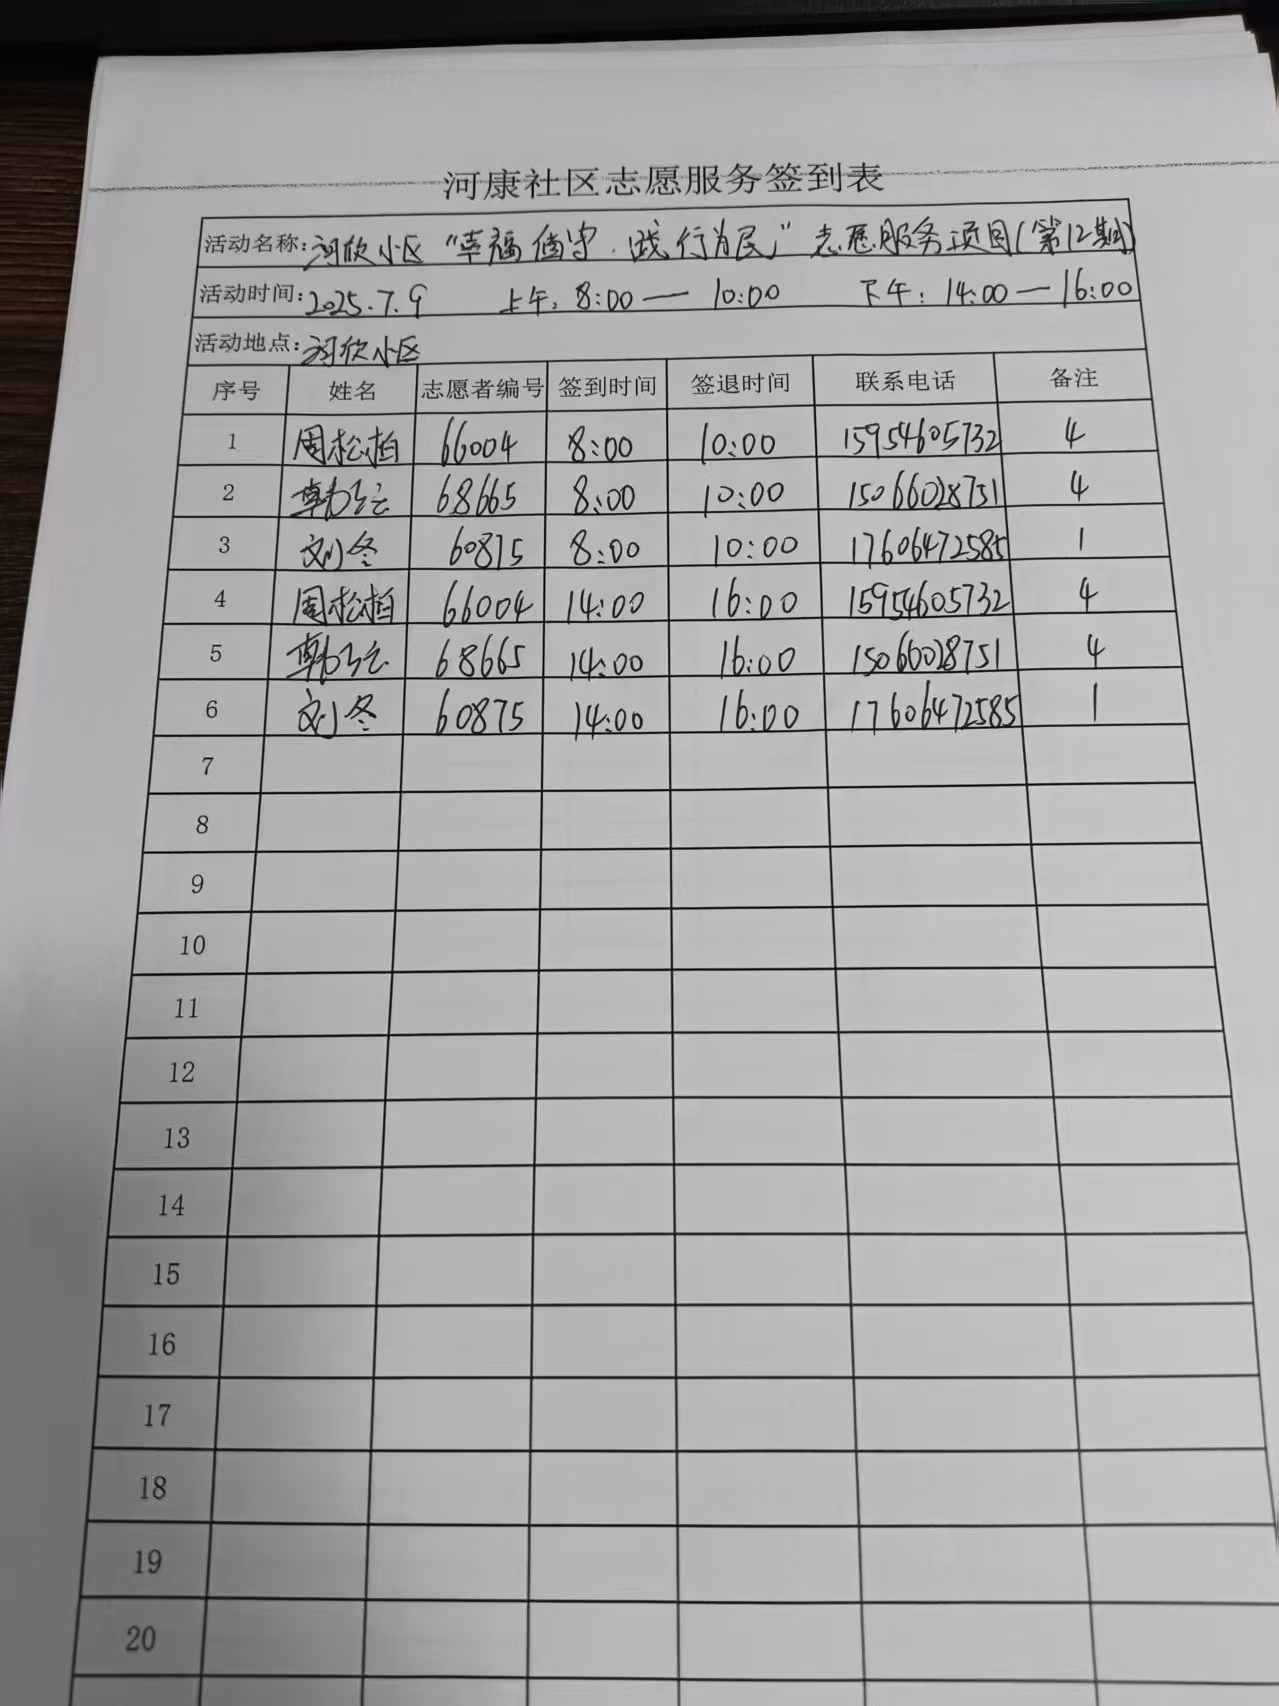 河康社区志愿服务签到表
活动名称:河欣小区“幸福值守·践行为民”志愿服务项目(第12期)
活动时间:2025.7.9 上午:8:00—10:00 下午:14:00—16:00
活动地点:河欣小区
序号 姓名 志愿者编号 签到时间 签退时间 联系电话 备注
1 周松柏 66004 8:00 10:00 15954605732 4
2 68665 8:00 10:00 15066028751 4
3 刘冬 60875 8:00 10:00 17606472585 1
4 周松柏 66004 14:00 16:00 15954605732 4
5 68665 14:00 16:00 15066028751 4
6 刘冬 60875 14:00 16:00 17606472585 1
7
8
9
10
11
12
13
14
15
16
17
18
19
20